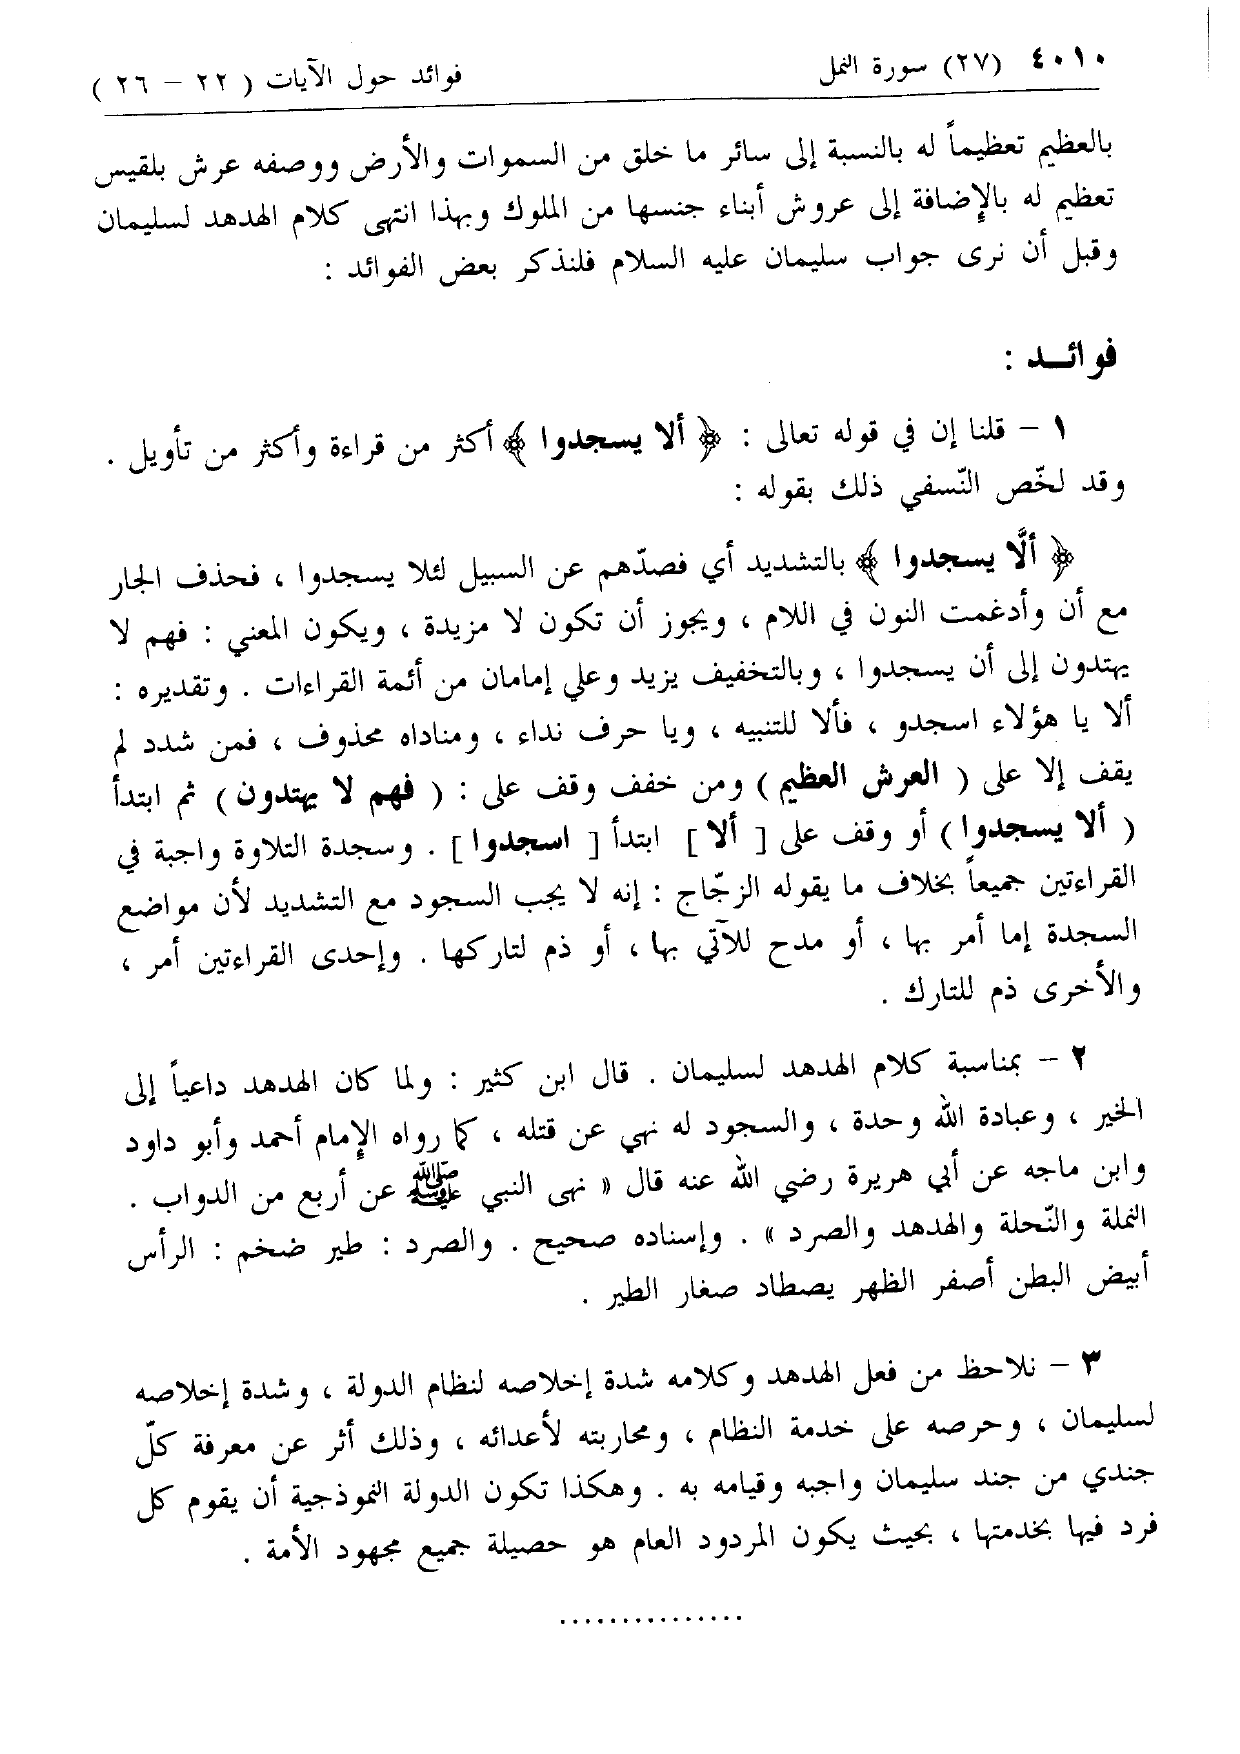 ٤٠١٠ (٢٧) سورة النمل فوائد حول الآيات ( ٢٢ – ٢٦ )
بالعظيم تعظيماً له بالنسبة إلى سائر ما خلق من السموات والأرض ووصفه عرش بلقيس
تعظيم له بالإضافة إلى عروش أبناء جنسها من الملوك وبهذا انتهى كلام الهدهد لسليمان
وقبل أن نرى جواب سليمان عليه السلام فلنذكر بعض الفوائد :
فوائـد :
١ – قلنا إن في قوله تعالى : ﴿ ألا يسجدوا ﴾ أكثر من قراءة وأكثر من تأويل .
وقد لخّص النّسفي ذلك بقوله :
﴿ ألَّا يسجدوا ﴾ بالتشديد أي فصدّهم عن السبيل لئلا يسجدوا ، فحذف الجار
مع أن وأدغمت النون في اللام ، ويجوز أن تكون لا مزيدة ، ويكون المعني : فهم لا
يهتدون إلى أن يسجدوا ، وبالتخفيف يزيد وعلي إمامان من أئمة القراءات . وتقديره :
ألا يا هؤلاء اسجدو ، فألا للتنبيه ، ويا حرف نداء ، ومناداه محذوف ، فمن شدد لم
يقف إلا على ( العرش العظيم ) ومن خفف وقف على : ( فهم لا يهتدون ) ثم ابتدأ
( ألا يسجدوا ) أو وقف على [ ألا ] ابتدأ [ اسجدوا ] . وسجدة التلاوة واجبة في
القراءتين جميعاً بخلاف ما يقوله الزجّاج : إنه لا يجب السجود مع التشديد لأن مواضع
السجدة إما أمر بها ، أو مدح للآتي بها ، أو ذم لتاركها . وإحدى القراءتين أمر ،
والأخرى ذم للتارك .
٢ – بمناسبة كلام الهدهد لسليمان . قال ابن كثير : ولما كان الهدهد داعياً إلى
الخير ، وعبادة الله وحدة ، والسجود له نهي عن قتله ، كما رواه الإمام أحمد وأبو داود
وابن ماجه عن أبي هريرة رضي الله عنه قال « نهى النبي ﷺ عن أربع من الدواب .
النملة والنّحلة والهدهد والصرد » . وإسناده صحيح . والصرد : طير ضخم : الرأس
أبيض البطن أصفر الظهر يصطاد صغار الطير .
٣ – نلاحظ من فعل الهدهد وكلامه شدة إخلاصه لنظام الدولة ، وشدة إخلاصه
لسليمان ، وحرصه على خدمة النظام ، ومحاربته لأعدائه ، وذلك أثر عن معرفة كلّ
جندي من جند سليمان واجبه وقيامه به . وهكذا تكون الدولة النموذجية أن يقوم كل
فرد فيها بخدمتها ، بحيث يكون المردود العام هو حصيلة جميع مجهود الأمة .
...............